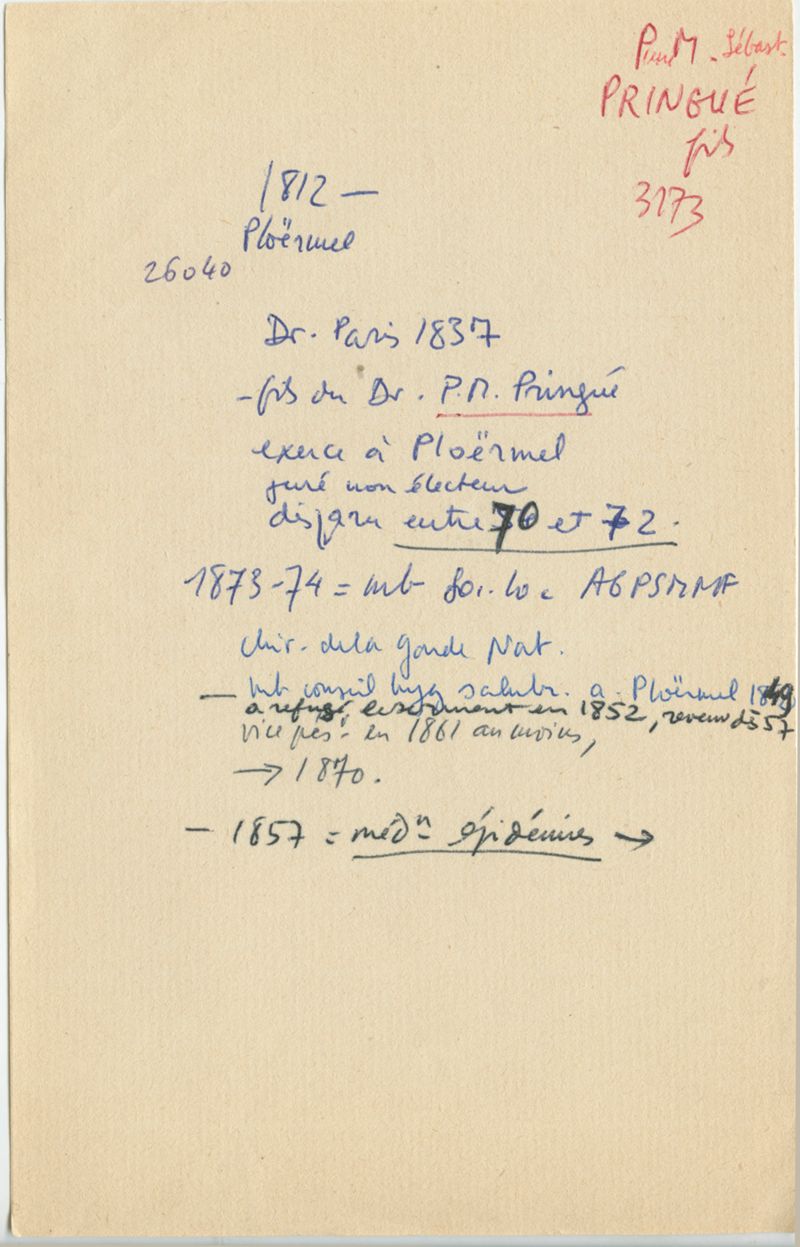 Pierre M. Sébast.
PRINGUÉ
fils
3173
1812 —
Ploërmel
26040
Dr. Paris 1837
- fils du Dr. P.M. Pringué
exerce à Ploërmel
juré non électeur
disparu entre 70 et 72.
1873-74 = mb Soi. lo. AGPSMMF
chir. de la garde Nat.
— mb conseil hyg salubr. a. Ploërmel 1849
a refusé le serment en 1852, revenu dès 57
vice prés. en 1861 au moins,
→ 1870.
— 1857 = médn épidémies →